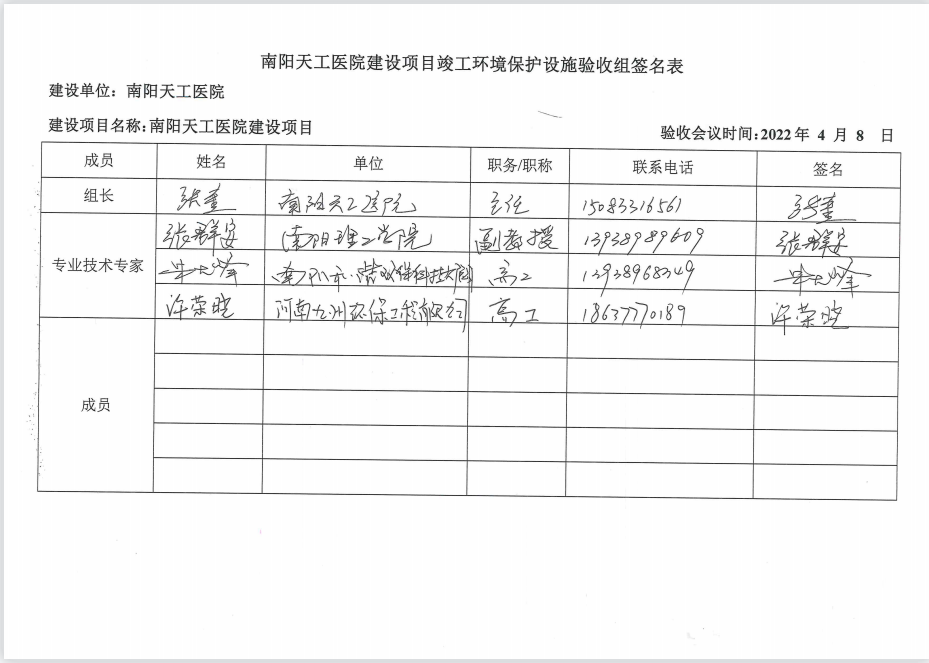 南阳天工医院建设项目竣工环境保护设施验收组签名表
建设单位：南阳天工医院
建设项目名称：南阳天工医院建设项目 验收会议时间：2022年 4 月 8 日
成员 姓名 单位 职务/职称 联系电话 签名
组长 张奎 南阳天工医院 主任 15083316561 张奎
张群安 南阳理工学院 副教授 13938989609 张群安
专业技术专家 高工 13938968349
许荣晓 河南九州环保工程有限公司 高工 18637770189 许荣晓
成员